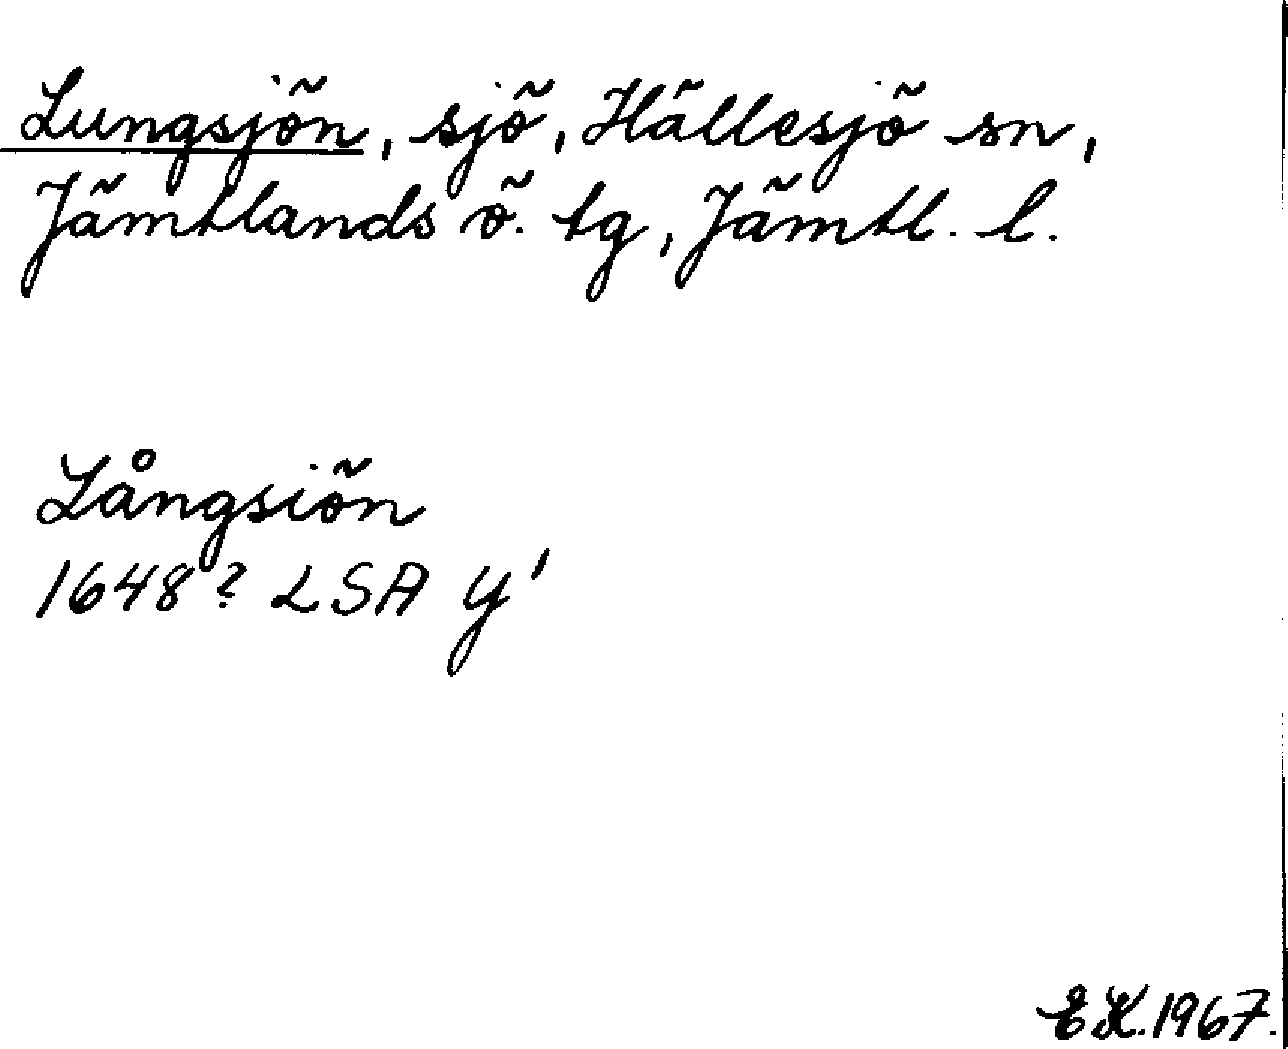 Lungsjön, sjö, Hällesjö sn,
Jämtlands ö. tg, Jämtl. l.
Långsiön
1648? LSA Y'
EK.1967.